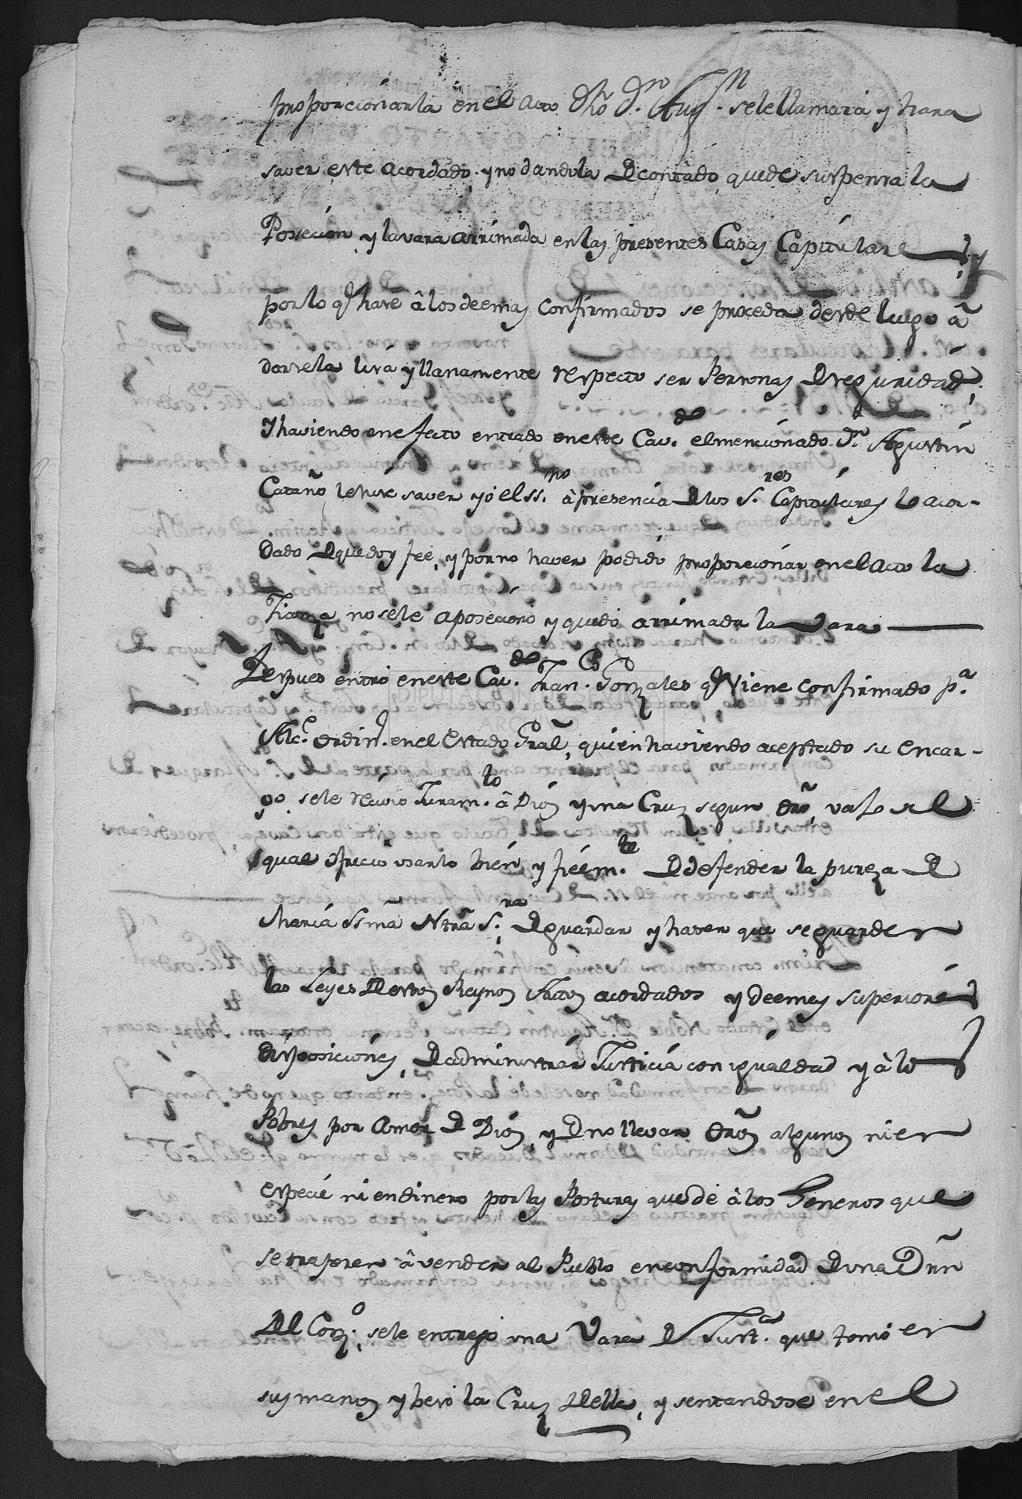 proporcionarla en el acto dho Dn. Augn. sele llamara y hara
saver este acordado, y no dandola de contado, quede suspensa la
Posecion y la vara arrimada en las presentes Casas Capitulares, y
por lo q.e hare â los deemas confirmados se proceda desde luego â
darsela lisa y llanamente respecto ser Personas de seguridad,
Y haviendo en efecto entrado en este Cav.do el mencionado Dn. Agustin
Cataño le hize saver yo el ss.no â presencia de los S.res Capitulares lo acor-
dado de que doy fee, y por no haver podido proporcionar en el acto la
Fianza no se le aposeciono y quedo arrimada la vara
Despues entro en este Cav.do Fran.co Gonzales q.e viene confirmado p.a
Alc.e ordin.o en el estado Gral, quien haviendo aceptado su encar-
go, se le recivio Juram.to â Dios y una Cruz segun dro, vajo el
qual ofrecio usarlo bien y fielm.te de defender la pureza de
Maria Ssma Ntra S.ra, de guardar y hacer que se guarden
las Leyes de estos Reynos Autos acordados y deemas superiores
disposiciones, de administrar Justicia con igualdad y â los
Pobres por Amor de Dios, y de no llevar dros algunos ni en
especie ni en dinero por las Posturas que dé â los Generos que
se trageren â vender al Pueblo en conformidad de una Orn
del Con.o, se le entrego una Vara de Just.a que tomó en
sus manos y besó la Cruz de ella, y sentandose en el